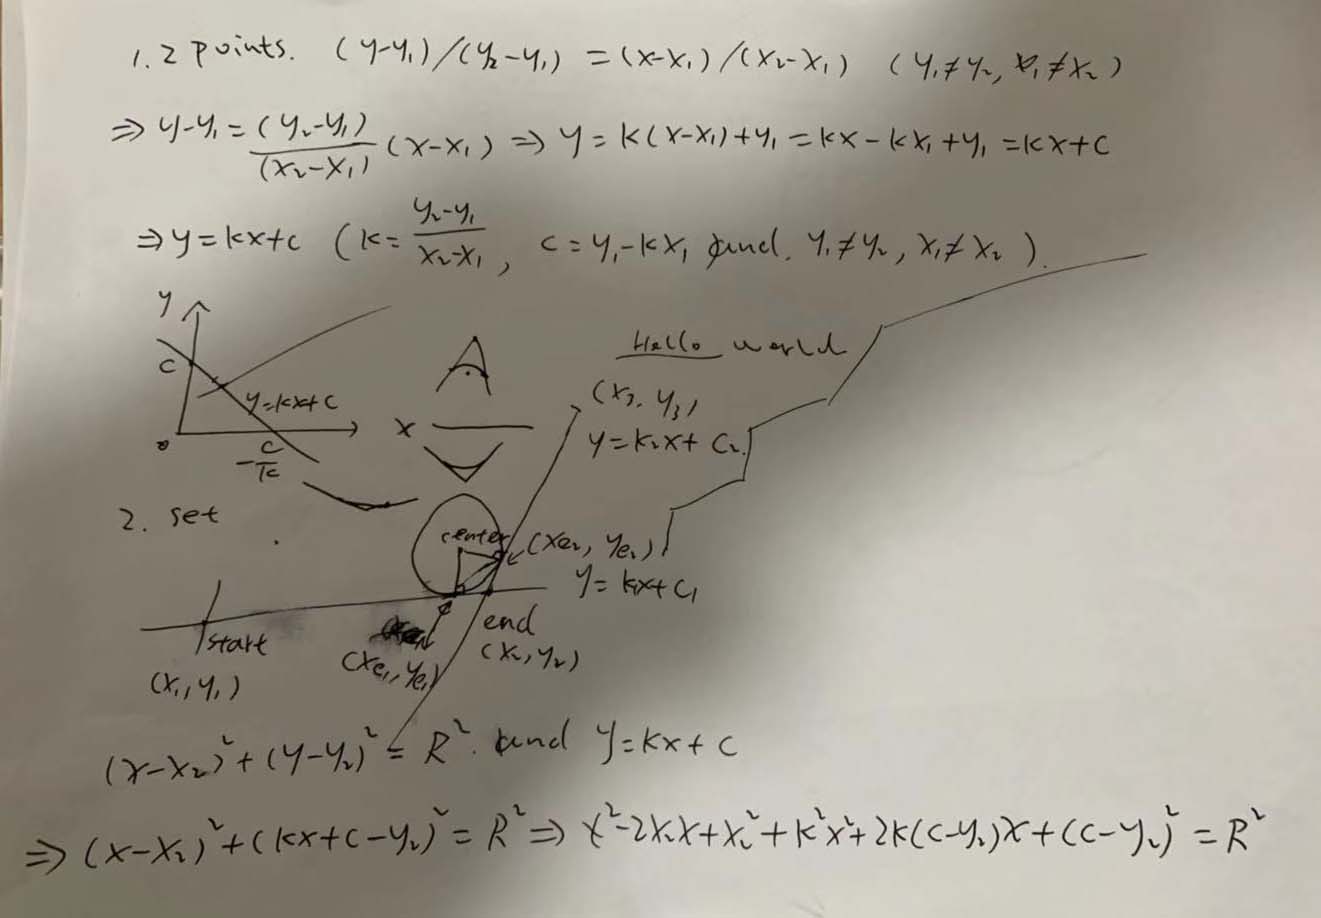 1. 2 points. (y-y₁)/(y₂-y₁) = (x-x₁)/(x₂-x₁) (y₁≠y₂, x₁≠x₂)
⇒ y-y₁ = (y₂-y₁)/(x₂-x₁) (x-x₁) ⇒ y = k(x-x₁)+y₁ = kx-kx₁+y₁ = kx+c
⇒ y = kx+c (k = y₂-y₁/x₂-x₁, c = y₁-kx₁ and. y₁≠y₂, x₁≠x₂).
y
c
y=kx+c
o
-c/k
x
A
Hello world
(x₃, y₃)
y=k₂x+c₂
2. set
center
(xe₂, ye₂)
y=k₁x+c₁
start
(x₁, y₁)
(xe₁, ye₁)
end
(x₂, y₂)
(x-x₂)²+(y-y₂)² = R². and y=kx+c
⇒ (x-x₂)²+(kx+c-y₂)² = R² ⇒ x²-2x₂x+x₂²+k²x²+2k(c-y₂)x+(c-y₂)² = R²